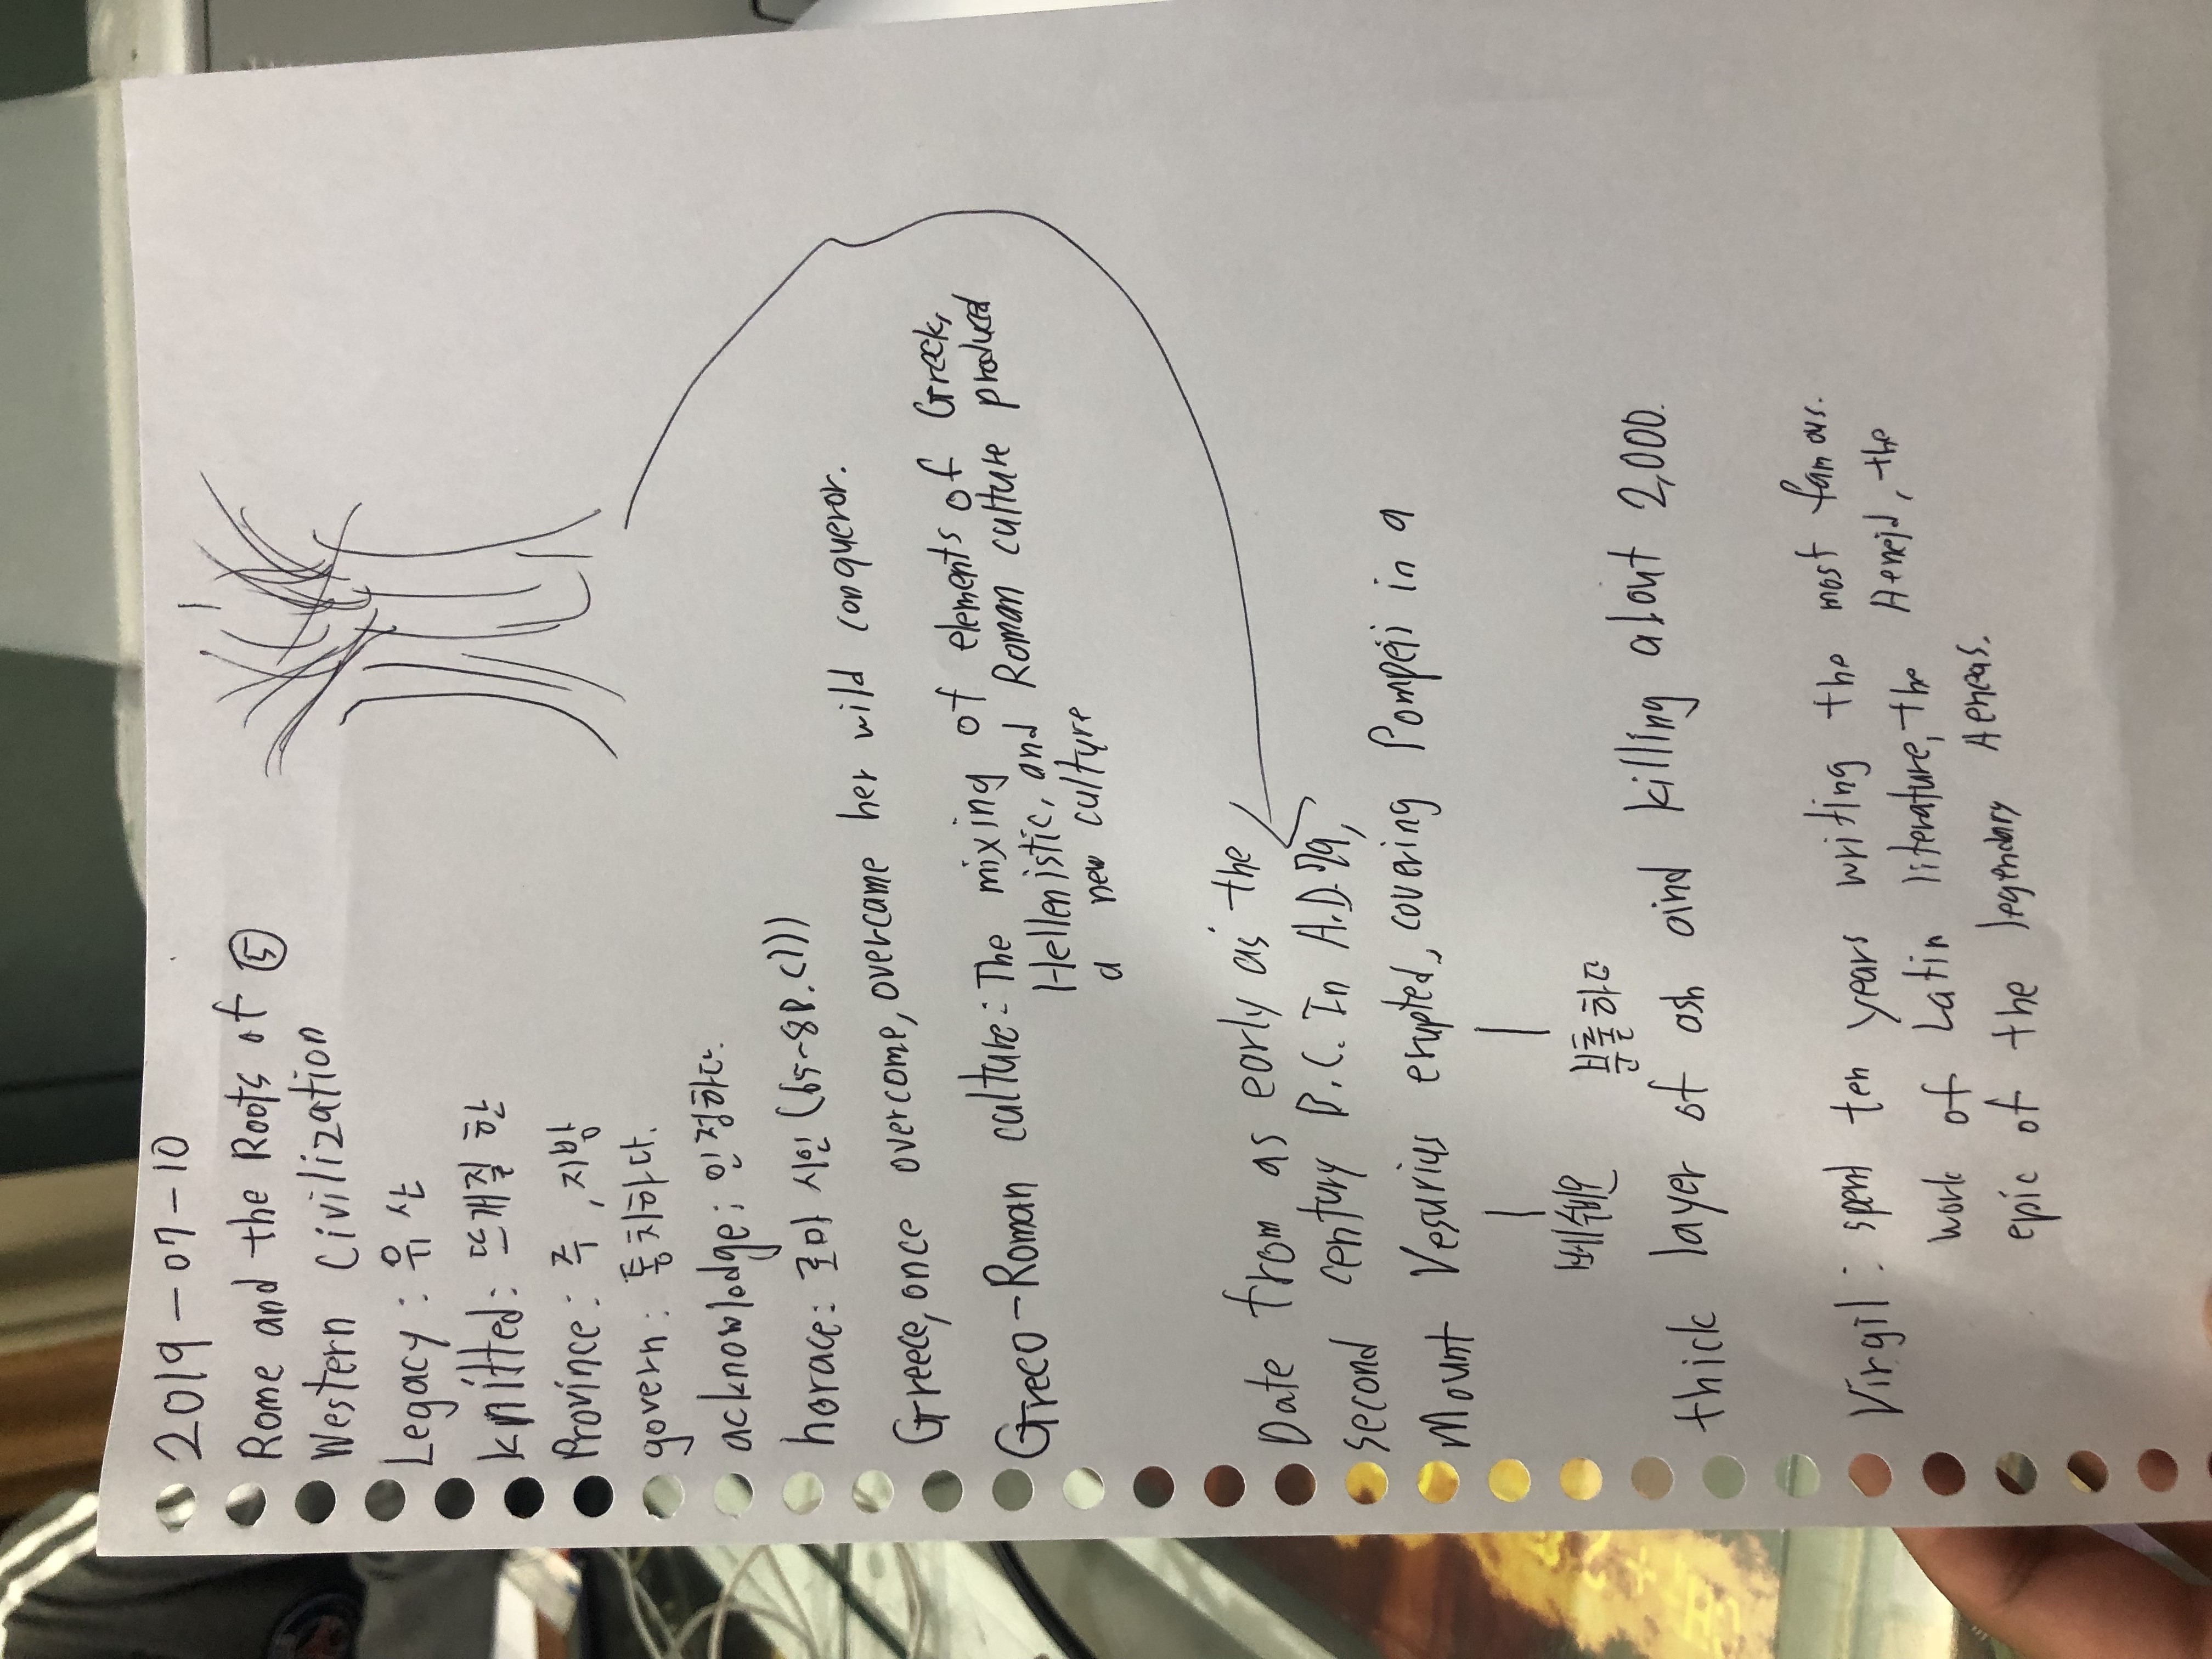 2019-07-10
Rome and the Roots of ⑤
Western Civilization
Legacy : 유산
knitted : 뜨개질 한
Province : 주, 지방
govern : 통치하다.
acknowledge : 인정하다.
horace : 로마 시인 (65~8B.C)))
Greece, once overcome, overcame her wild conqueror.
Greco-Roman culture : The mixing of elements of Greek,
Hellenistic, and Roman culture produced
a new culture
Date from as early as the
second century B.C. In A.D. 79,
Mount Vesurius erupted, covering Pompeii in a
베수비우 분출하다
thick layer of ash and killing about 2,000.
Virgil : spent ten years writing the most famous.
work of Latin literature, the Aeneid, the
epic of the legendary Aeneas.